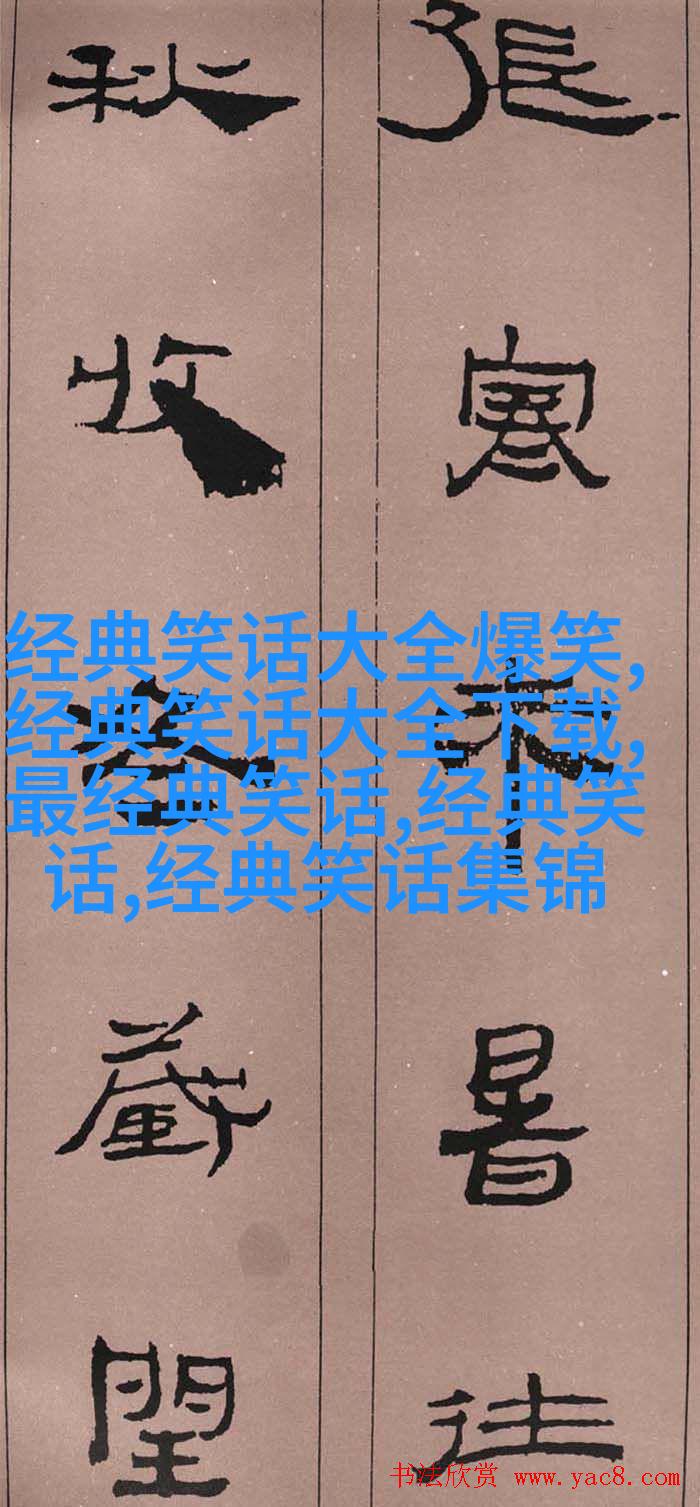 張寒來暑往
秋收冬藏閏
经典笑话大全爆笑,
经典笑话大全下载,
最经典笑话,经典笑
话,经典笑话集锦
书法欣赏 www.yac8.com